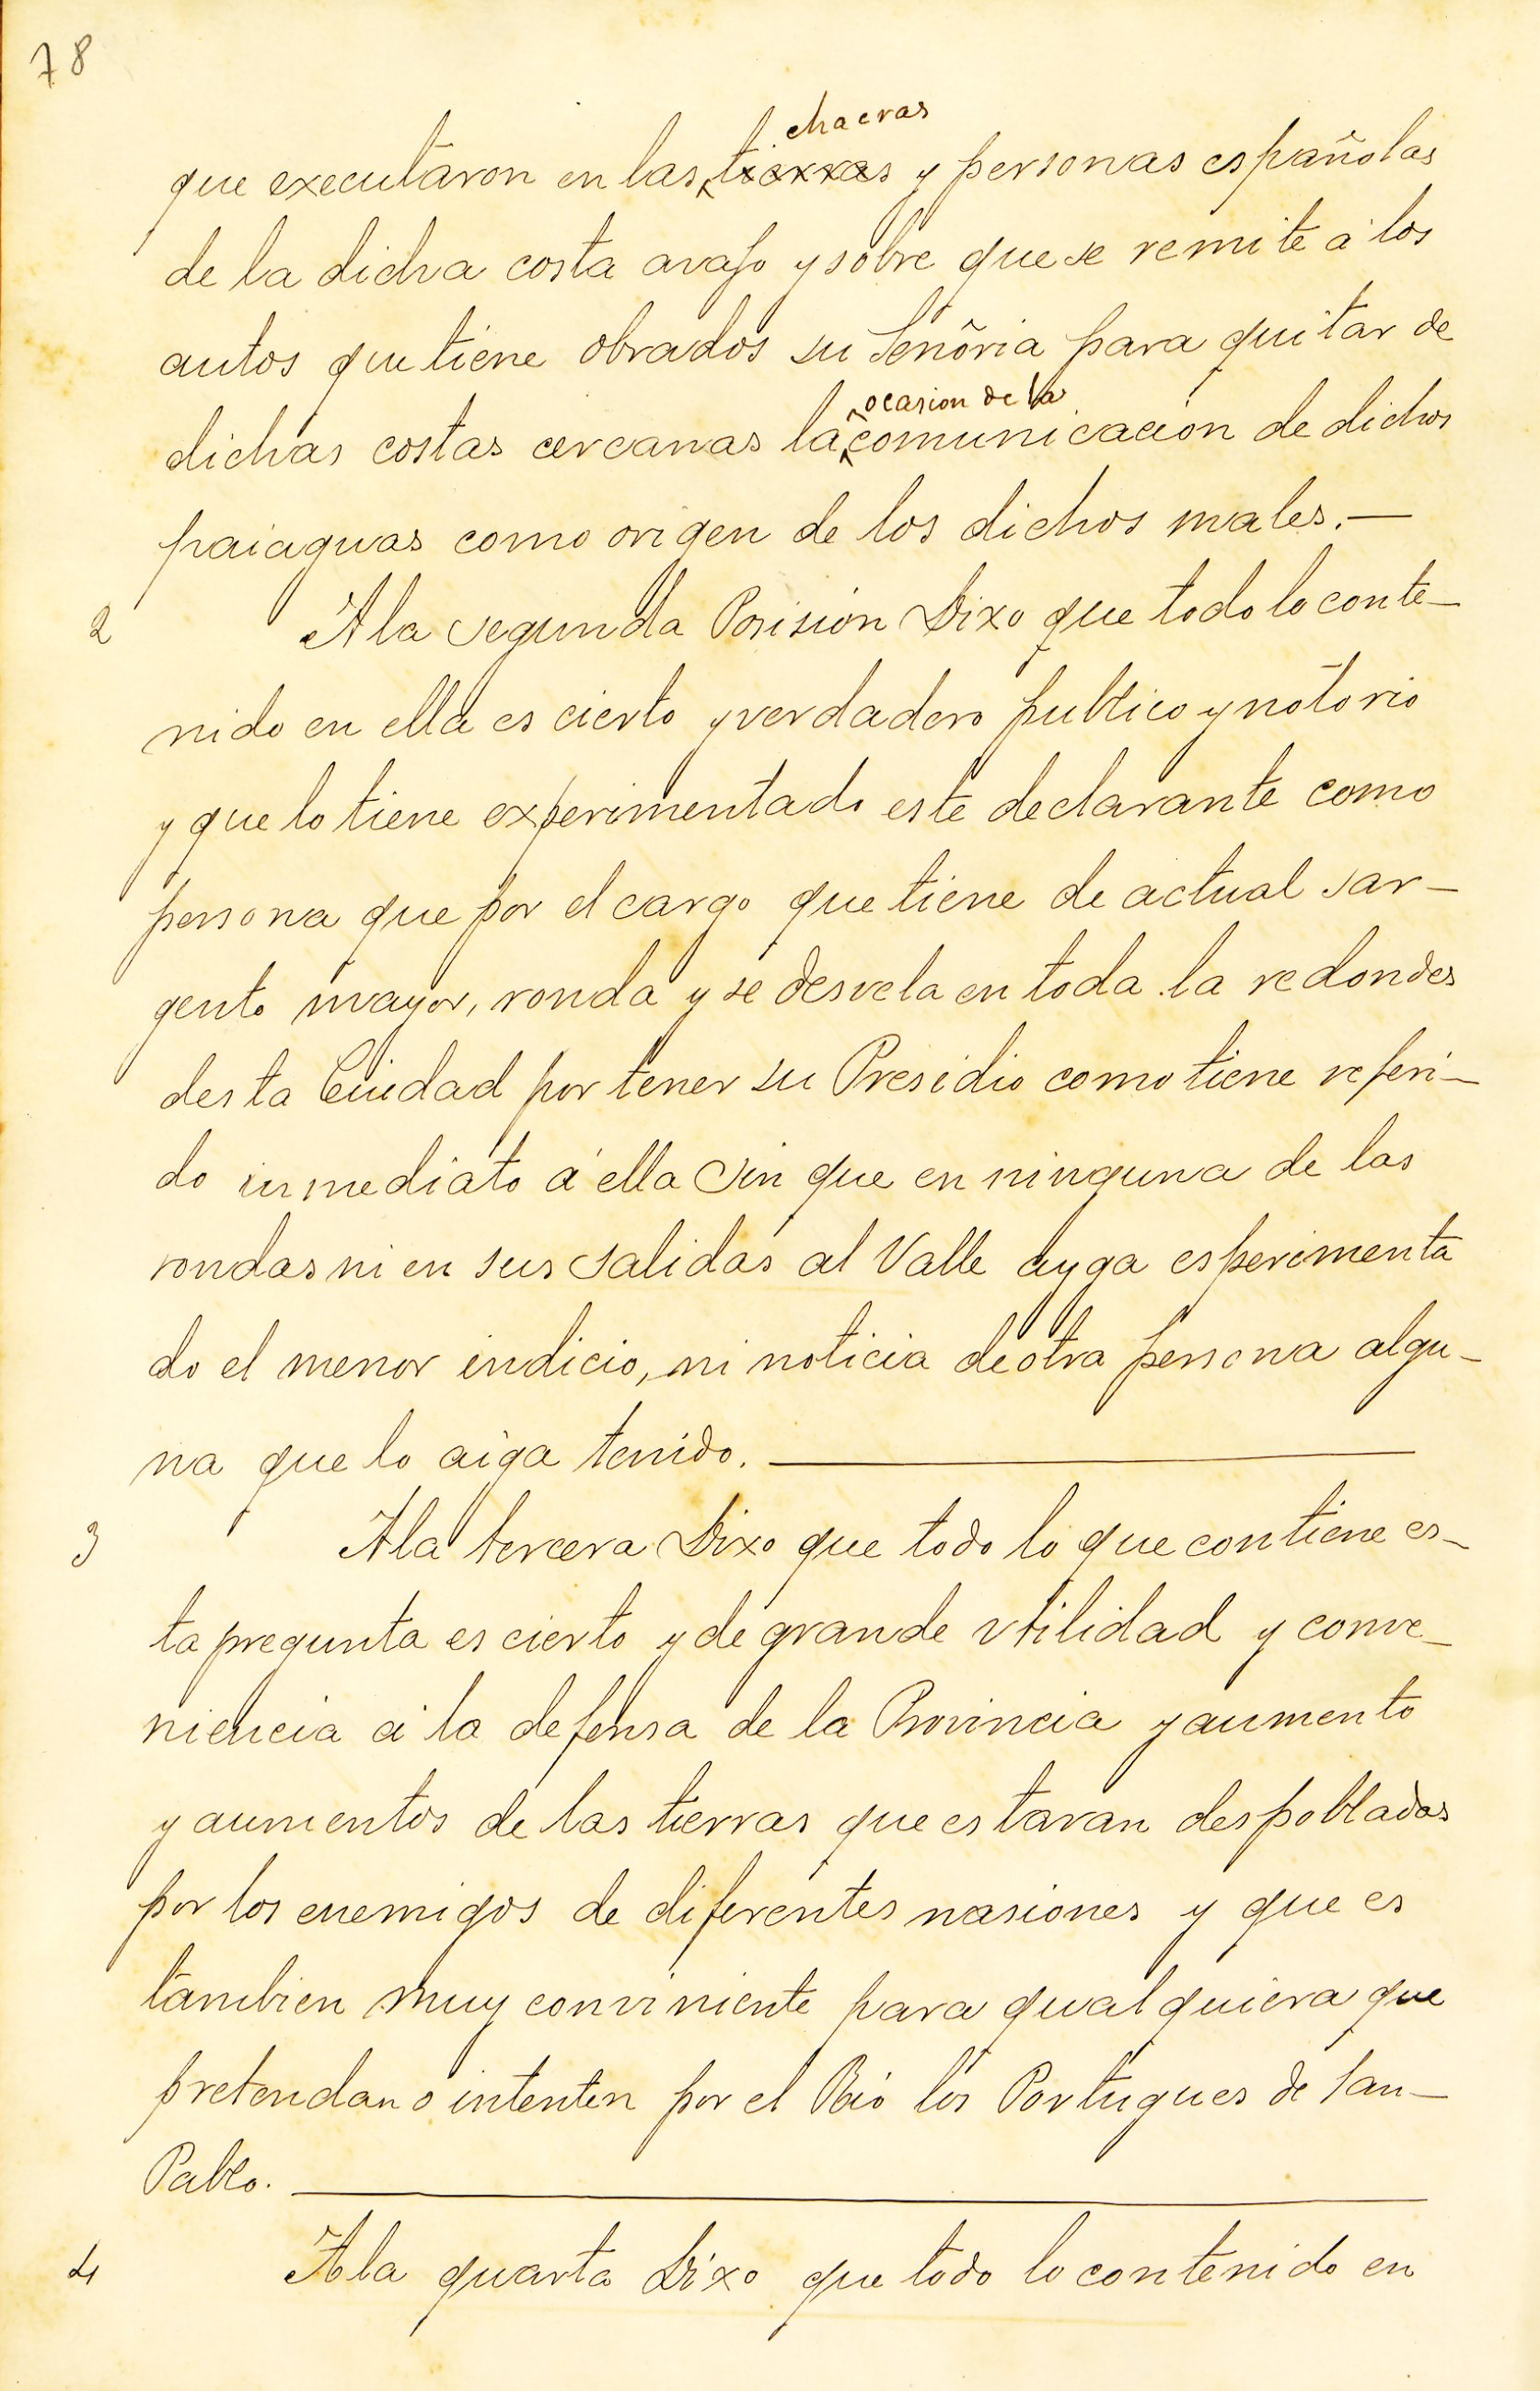 78
chacras
que executaron en las tierras y personas españolas
de la dicha costa avajo y sobre que se remite á los
autos que tiene obrados su Señoria para quitar de
ocasion de la
dichas costas cercanas la comunicacion de dichos
paiaguas como origen de los dichos males.—
2 A la segunda Posision Dixo que todo lo conte—
nido en ella es cierto y verdadero publico y notorio
y que lo tiene experimentado este declarante como
persona que por el cargo que tiene de actual sar—
gento mayor, ronda y se desvela en toda la redondes
desta Ciudad por tener su Presidio como tiene referi—
do inmediato á ella sin que en ninguna de las
rondas ni en sus salidas al Valle ayga esperimenta
do el menor indicio, ni noticia de otra persona algu—
na que lo aiga tenido. —
3 A la tercera Dixo que todo lo que contiene es—
ta pregunta es cierto y de grande vtilidad y conve—
niencia á la defensa de la Provincia y aumento
y aumentos de las tierras que estavan despobladas
por los enemigos de diferentes nasiones y que es
tambien muy conviniente para qualquiera que
pretendan o intenten por el Rio los Portugues de San—
Pablo. —
4 A la quarta Dixo que todo lo contenido en